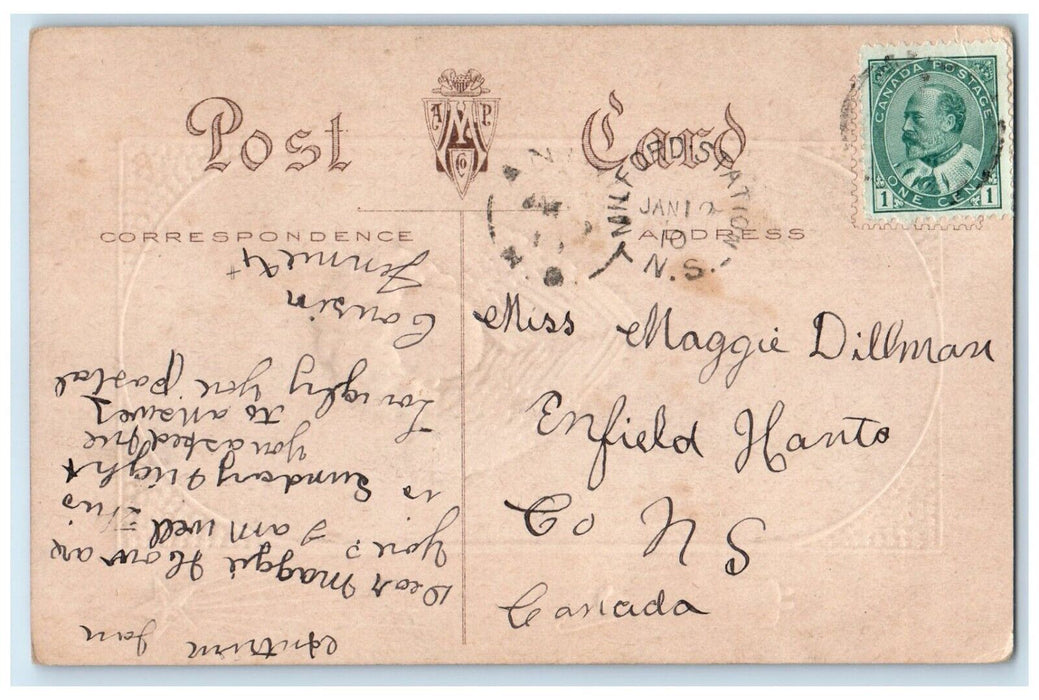 Post Card
A M P Co
CORRESPONDENCE
ADDRESS
CANADA POSTAGE
1 ONE CENT 1
MILFORD STATION
JAN 12
10
N.S.
Miss Maggie Dillman
Enfield Hants
Co N S
Canada
Antrim Jan
Dear Maggie How are
you? I am well this
is Sunday Night
you asked me
to answer
you postal
Cousin